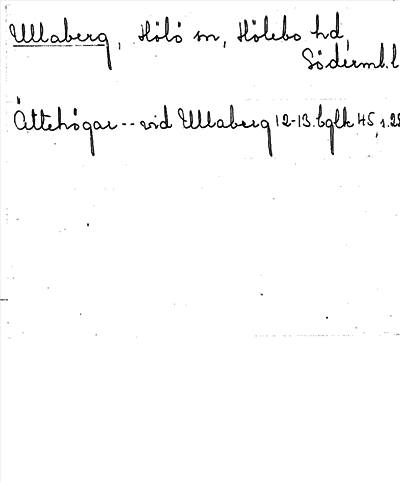 Ullaberg, Hölö sn, Hölebo hd,
Södermb.l
Ättehögar -- vid Ullaberg 12-13.bglk 45, s.28